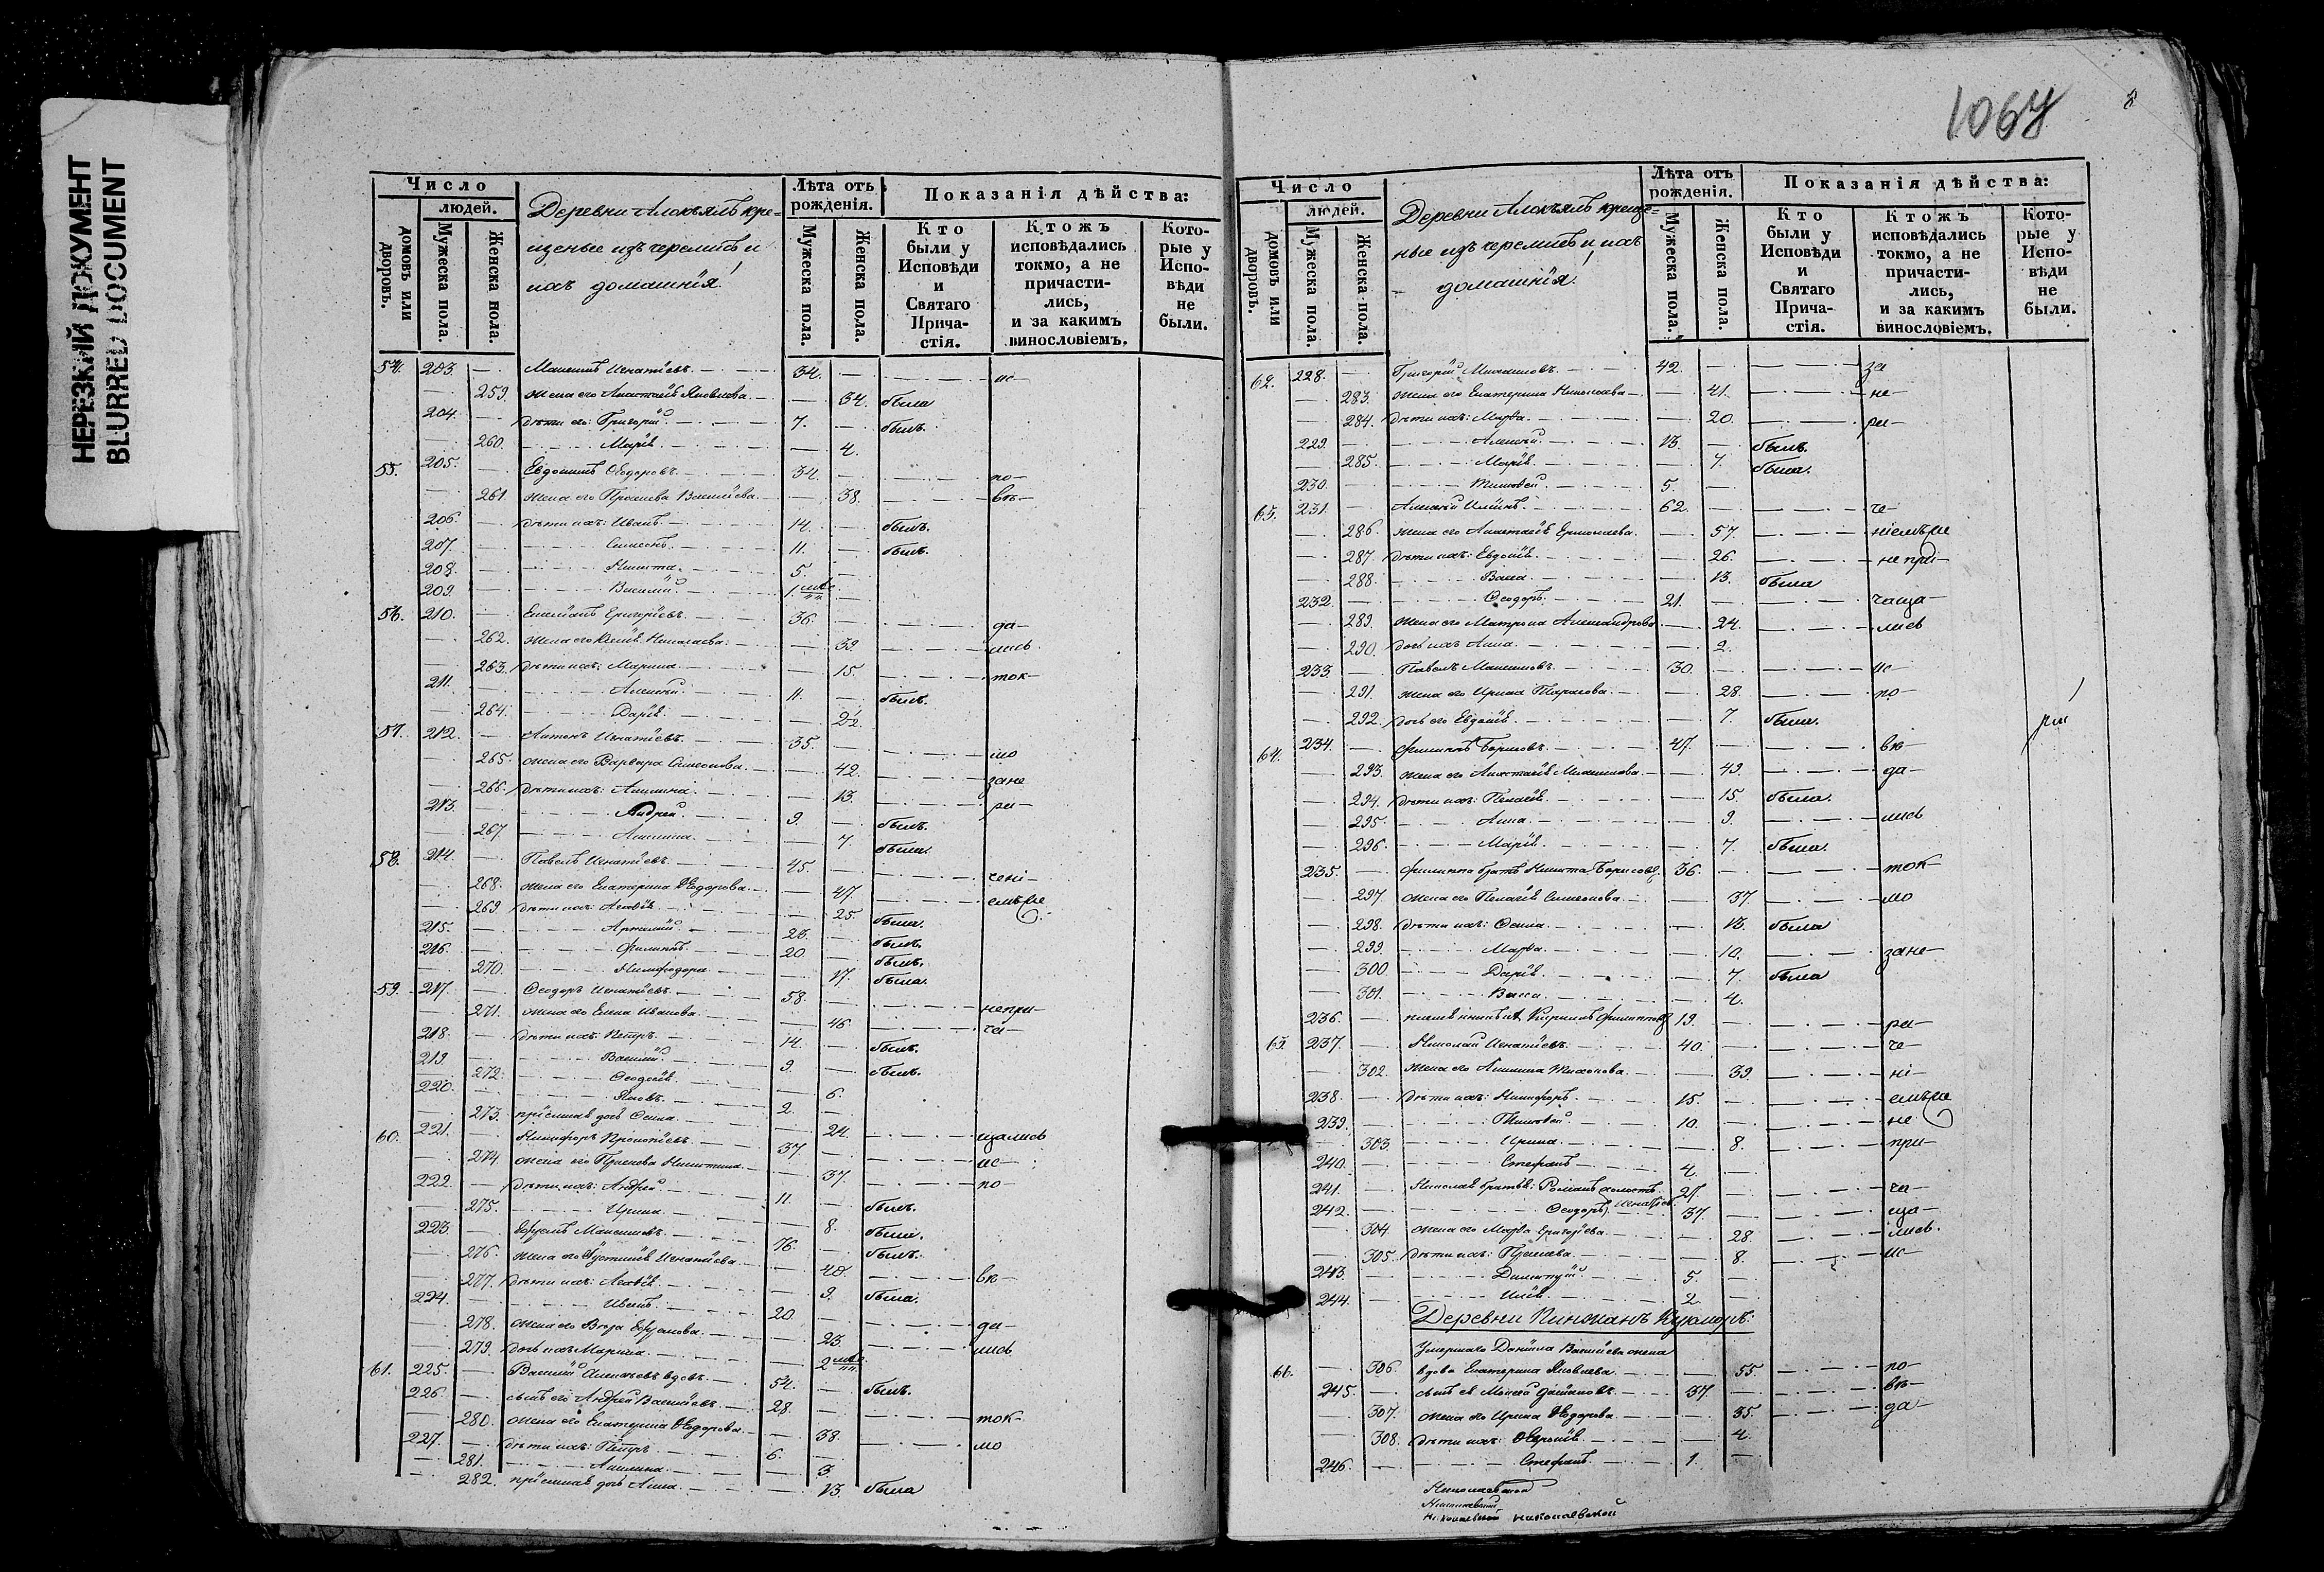 НЕРЕЗКИЙ ДОКУМЕНТ
BLURRED DOCUMENT
1067
8
Число
людей.
домовъ или дворовъ.
Мужеска пола.
Женска пола.
Деревни кре=
щеные изъ черемисъ и
ихъ домашнія:
Лѣта отъ рожденія.
Мужеска пола.
Женска пола.
Показанія дѣйства:
Кто были у Исповѣди и Святаго Причастія.
Ктожъ исповѣдались токмо, а не причастились, и за какимъ винословіемъ.
Которые у Исповѣди не были.
54. 203. Игнатіевъ 34. ис–
259. жена его Яковлева 34. была
204. дѣти его: Григорій 7. былъ.
260. Марія 4.
55. 205. Евдокимъ Ѳеодоровъ 34. по–
261. жена его Васильева 38. вѣ–
206. дѣти ихъ: Иванъ 14. былъ.
207. Симеонъ 11. былъ.
208. Никита 5.
209. Василій 1
56. 210. Емеліанъ Григорьевъ 36. да–
262. жена его Николаева 39. лись
263. дѣти ихъ: Марина 15. ток–
211. Алексѣй 11. былъ.
264. Дарія 2½
57. 212. Антонъ Игнатіевъ 35. мо
265. жена его Варвара Симеонова 42. зане
266. дѣти ихъ: Акилина 13. ра–
213. Андрей 9. былъ.
267. Акилина 7 была.
58. 214. Павелъ Игнатіевъ 45. чені–
268. жена его Екатерина Ѳеодорова 47. емъ не
269. дѣти ихъ: Агафія 25 была.
215. 23. былъ.
216. Филиппъ 20. былъ.
270. 17. была.
59. 217. Ѳеодоръ Игнатіевъ 58. непри–
271. жена его Елена Иванова 46. ча–
218. дѣти ихъ: Петръ 14. былъ.
219. Василій 9. былъ.
272. Ѳеодосія 6.
220. Яковъ 2.
273. пріемная дочь 24. щались
60. 221. Никифоръ 37. ис–
274. жена его Никитина 37. по–
222. дѣти ихъ: Андрей 11. былъ.
275. Ирина 8. была.
223. Ефремъ Максимовъ 76. былъ.
276. жена его Игнатіева 48. вѣ–
277. дѣти ихъ: Агафія 9. была.
224. Иванъ 20. да–
278. жена его Ефремова 23. лись
279. дочь ихъ Марина 2
61. 225. Василій Алексѣевъ вдовъ 54. былъ.
226. сынъ его Андрей Васильевъ 28.
280. жена его Екатерина Ѳеодорова 38. ток–
227. дѣти ихъ: Петръ 6. мо
281. Акилина 3
282. пріемная дочь Анна 13. была
Число
людей.
домовъ или дворовъ.
Мужеска пола.
Женска пола.
Деревни креще=
ные изъ черемисъ и ихъ
домашнія:
Лѣта отъ рожденія.
Мужеска пола.
Женска пола.
Показанія дѣйства:
Кто были у Исповѣди и Святаго Причастія.
Ктожъ исповѣдались токмо, а не причастились, и за какимъ винословіемъ.
Которые у Исповѣди не были.
62. 228. Григорій 42. за
283. жена его Екатерина Николаева 41. не–
284. дѣти ихъ: Марѳа 20. ра–
229. Алексѣй 13. былъ.
285. Марія 7. была.
230. Тимоѳей 5.
63. 231. Алексѣй Ильинъ 62. че–
286. жена его Анастасія Ермолаева 57. ніемъ не
287. дѣти ихъ: Евдокія 26. не при–
288. Васса 13. была
232. Ѳеодоръ 21. чаща–
289. жена его Матрона Александрова 24. лись
290. дочь ихъ Анна 2.
233. Павелъ Максимовъ 30. ис–
291. жена его Ирина Тарасова 28. по–
292. дочь его Евдокія 7. была.
64. 234. Филиппъ Борисовъ 47. вѣ–
293. жена его Анастасія 49. да–
294. дѣти ихъ: Пелагія 15. была.
295. Анна 9. лись
296. Марія 7. была.
235. Филиппа братъ Никита Борисовъ 36. ток–
297. жена его Пелагія Симеонова 37. мо
298. дѣти ихъ: 13. была
299. Марѳа 10. зане–
300 Дарія 7. была
301. Васса 4.
236. Кириллъ Филипповъ 19. ра–
65. 237. Николай Игнатіевъ 40. че–
302. жена его Акилина Тихонова 39. ні–
238. дѣти ихъ: Никифоръ 15. емъ не
239. Тимоѳей 10. не–
303. Ирина 8. при–
240. Стефанъ 4.
241. Николая братья: Романъ холостъ 27. ча–
242. Ѳеодоръ Игнатіев. 37. ща–
304. жена его Марѳа Григорьева 28. лись.
305. дѣти ихъ: 8. ис–
243. Димитрій 5.
244. Илія 2.
Деревни Пинжанъ Кукморъ:
Умершаго Даніила Васильева жена
66. 306. вдова Екатерина Яковлева 55. по–
245. сынъ ея Моисей Даніиловъ 37. вѣ–
307. жена его Ирина Ѳеодорова 35. да–
308. дѣти ихъ: 4.
246. Стефанъ 1.
Николаевской
Николаевской николаевской